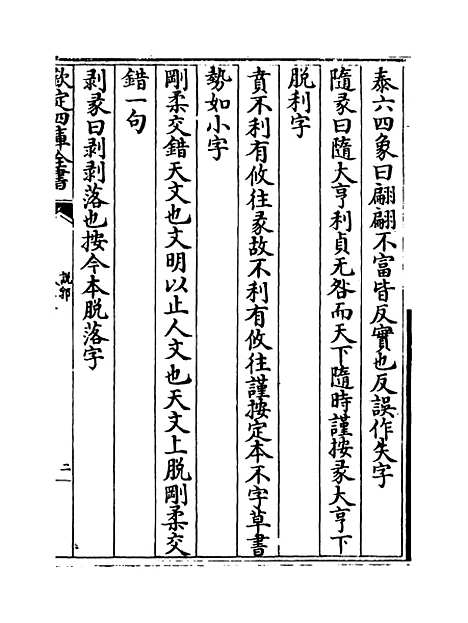 泰六四象曰翩翩不富皆反實也反誤作失字
隨彖曰隨大亨利貞无咎而天下隨時謹按彖大亨下
脱利字
賁不利有攸往彖故不利有攸往謹按定本不字草書
勢如小字
剛柔交錯天文也文明以止人文也天文上脱剛柔交
錯一句
剥彖曰剥剥落也按今本脱落字
欽定四庫全書
説郛
二